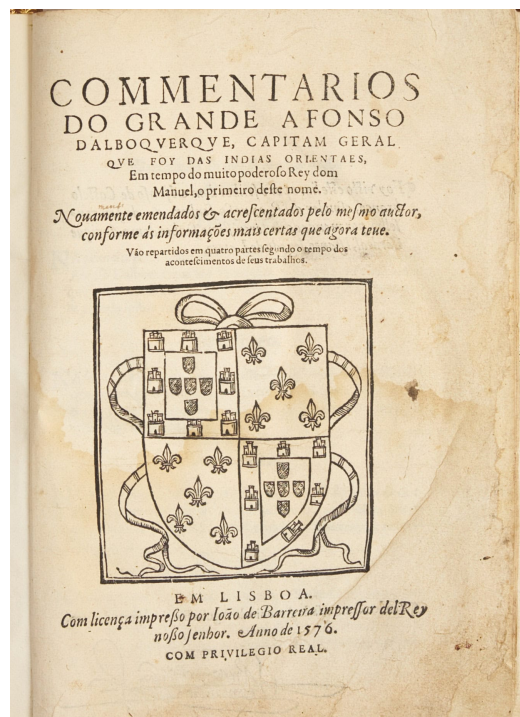 COMMENTARIOS
DO GRANDE AFONSO
DALBOQVERQVE, CAPITAM GERAL
QVE FOY DAS INDIAS ORIENTAES,
Em tempo do muito poderoſo Rey dom
Manuel, o primeiro deſte nome.
Nouamente emendados & acreſcentados pelo meſmo auctor,
conforme ás informações mais certas que agora teue.
Vão repartidos em quatro partes ſegundo o tempo dos
aconteſcimentos de ſeus trabalhos.
EM LISBOA.
Com licença impreſſo por Ioão de Barreira impreſſor delRey
noſſo ſenhor. Anno de 1576.
COM PRIVILEGIO REAL.